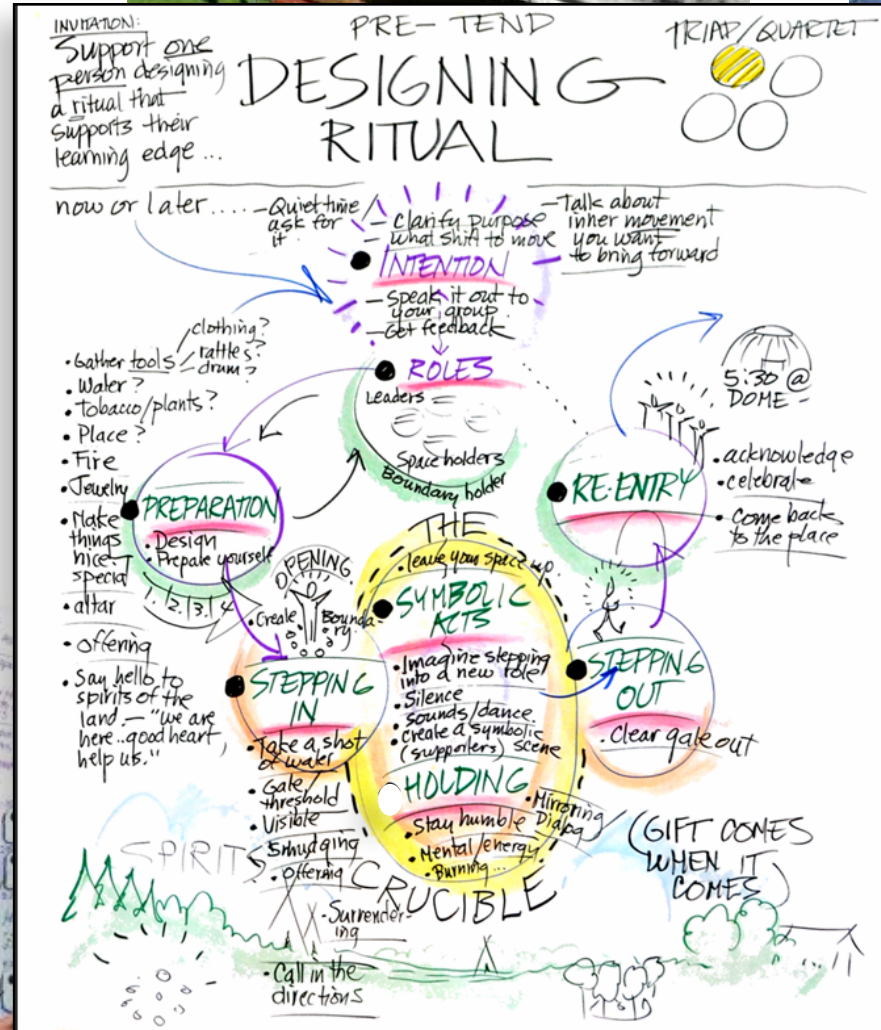 INVITATION:
Support one
person designing
a ritual that
supports their
learning edge...
PRE-TEND
DESIGNING
RITUAL
TRIAD/QUARTET
now or later.....
-Quiet time
ask for
it
- clarify purpose
- what shift to move
-Talk about
inner movement
you want
to bring forward
INTENTION
- Speak it out to
your group
- Get feedback
ROLES
Leaders
Space holders
Boundary holder
clothing?
rattles?
drum?
• Gather tools
• Water?
• Tobacco/plants?
• Place?
• Fire
• Jewelry
• Make
things
nice-
special
• altar
• offering
• Say hello to
spirits of the
land. - "we are
here..good heart,
help us."
PREPARATION
• Design
• Prepare yourself
1. /2/3/4
OPENING
• Create Bounda-
ry
STEPPING
IN
• Take a shot
of water
• Gate/
threshold
• Visible
• Smudging
• Offering
• Surrender-
ing
• Call in the
directions
THE
• leave your space up.
SYMBOLIC
ACTS
• Imagine stepping
into a new role
• Silence
sounds/dance.
• Create a symbolic
(supporters) scene
HOLDING
• Mirroring/
Dialog
• Stay humble
• Mental/energy
• Burning...
CRUCIBLE
STEPPING
OUT
• Clear gate out
RE-ENTRY
• acknowledge
• celebrate
• Come back
to the place
5:30 @
DOME-
(GIFT COMES
WHEN IT
COMES)
SPIRITS